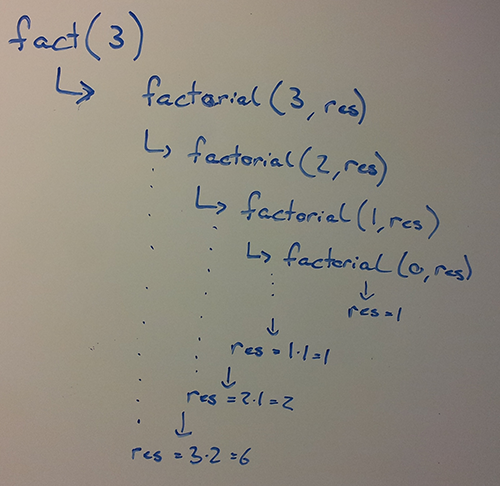 fact(3)
factorial(3, res)
factorial(2, res)
factorial(1, res)
factorial(0, res)
res = 1
res = 1·1 = 1
res = 2·1 = 2
res = 3·2 = 6